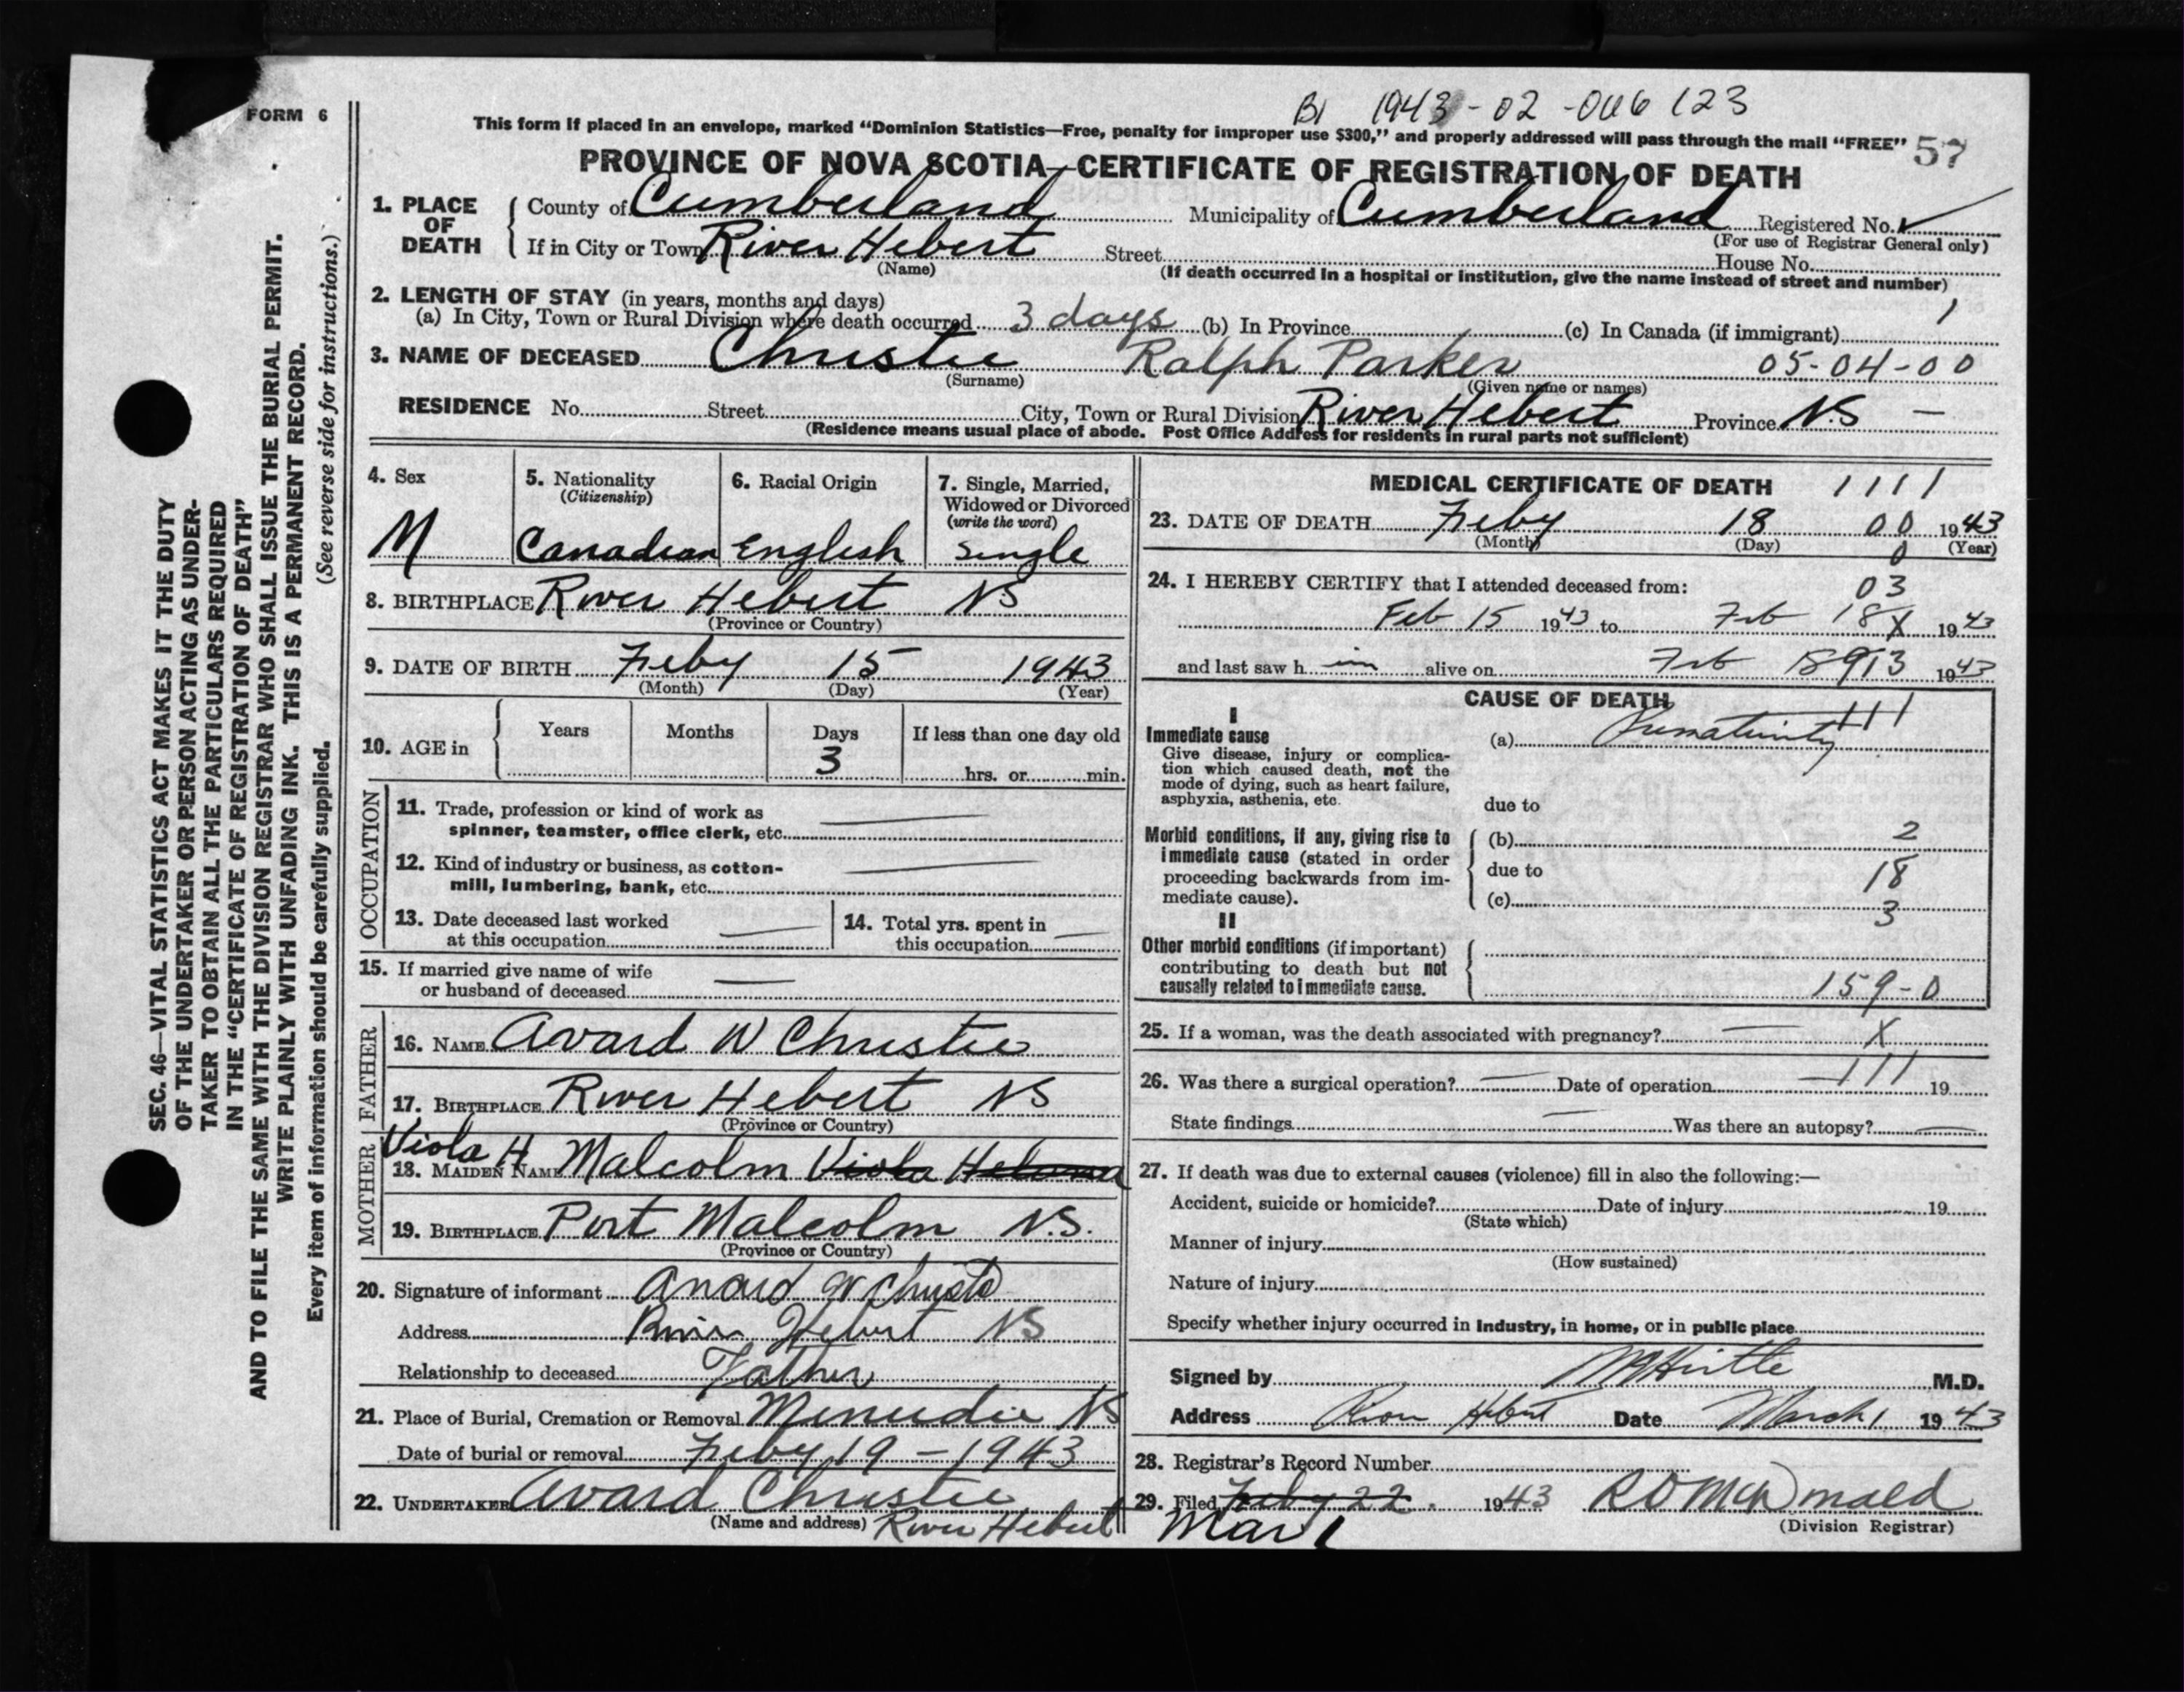 FORM 6
BI 1943-02-006123
This form if placed in an envelope, marked “Dominion Statistics—Free, penalty for improper use $300,” and properly addressed will pass through the mail “FREE” 57
PROVINCE OF NOVA SCOTIA—CERTIFICATE OF REGISTRATION OF DEATH
1. PLACE OF DEATH County of Cumberland Municipality of Cumberland Registered No.
(For use of Registrar General only)
If in City or Town River Hebert Street House No.
(Name) (If death occurred in a hospital or institution, give the name instead of street and number)
2. LENGTH OF STAY (in years, months and days) 1
(a) In City, Town or Rural Division where death occurred 3 days (b) In Province (c) In Canada (if immigrant)
3. NAME OF DECEASED Christie Ralph Parker 05-04-00
(Surname) (Given name or names)
RESIDENCE No. Street City, Town or Rural Division River Hebert Province N.S —
(Residence means usual place of abode. Post Office Address for residents in rural parts not sufficient)
4. Sex
M
5. Nationality
(Citizenship)
Canadian
6. Racial Origin
English
7. Single, Married,
Widowed or Divorced
(write the word)
Single
8. BIRTHPLACE River Hebert NS
(Province or Country)
9. DATE OF BIRTH Feby 15 1943
(Month) (Day) (Year)
10. AGE in Years Months Days If less than one day old
3 hrs. or min.
OCCUPATION
11. Trade, profession or kind of work as
spinner, teamster, office clerk, etc. —
12. Kind of industry or business, as cotton-
mill, lumbering, bank, etc. —
13. Date deceased last worked
at this occupation —
14. Total yrs. spent in
this occupation —
15. If married give name of wife
or husband of deceased —
FATHER
16. NAME Avard W Christie
17. BIRTHPLACE River Hebert NS
(Province or Country)
MOTHER
Viola H
18. MAIDEN NAME Malcolm Viola
19. BIRTHPLACE Port Malcolm N.S.
(Province or Country)
20. Signature of informant Avard W Christie
Address River Hebert NS
Relationship to deceased Father
21. Place of Burial, Cremation or Removal Minudie NS
Date of burial or removal Feby 19 - 1943
22. UNDERTAKER Avard Christie
(Name and address) River Hebert
MEDICAL CERTIFICATE OF DEATH 1111
23. DATE OF DEATH Feby 18 00 1943
(Month) (Day) 0 (Year)
24. I HEREBY CERTIFY that I attended deceased from:
03
Feb 15 1943 to Feb 18 X 1943
and last saw h im alive on Feb 18 913 1943
CAUSE OF DEATH
I
Immediate cause
Give disease, injury or complica-
tion which caused death, not the
mode of dying, such as heart failure,
asphyxia, asthenia, etc.
(a) Prematurity 111
due to
Morbid conditions, if any, giving rise to
immediate cause (stated in order
proceeding backwards from im-
mediate cause).
(b) 2
due to 18
(c) 3
II
Other morbid conditions (if important)
contributing to death but not
causally related to immediate cause.
159-0
25. If a woman, was the death associated with pregnancy? — X
26. Was there a surgical operation? — Date of operation — 111 19
State findings — Was there an autopsy? —
27. If death was due to external causes (violence) fill in also the following:—
Accident, suicide or homicide? Date of injury 19
(State which)
Manner of injury
(How sustained)
Nature of injury
Specify whether injury occurred in industry, in home, or in public place
Signed by M.D.
Address River Hebert Date March 1 1943
28. Registrar's Record Number
29. Filed Feby 22. 1943
Mar 1
(Division Registrar)
SEC. 46—VITAL STATISTICS ACT MAKES IT THE DUTY
OF THE UNDERTAKER OR PERSON ACTING AS UNDER-
TAKER TO OBTAIN ALL THE PARTICULARS REQUIRED
IN THE “CERTIFICATE OF REGISTRATION OF DEATH”
AND TO FILE THE SAME WITH THE DIVISION REGISTRAR WHO SHALL ISSUE THE BURIAL PERMIT.
WRITE PLAINLY WITH UNFADING INK. THIS IS A PERMANENT RECORD.
Every item of information should be carefully supplied. (See reverse side for instructions.)